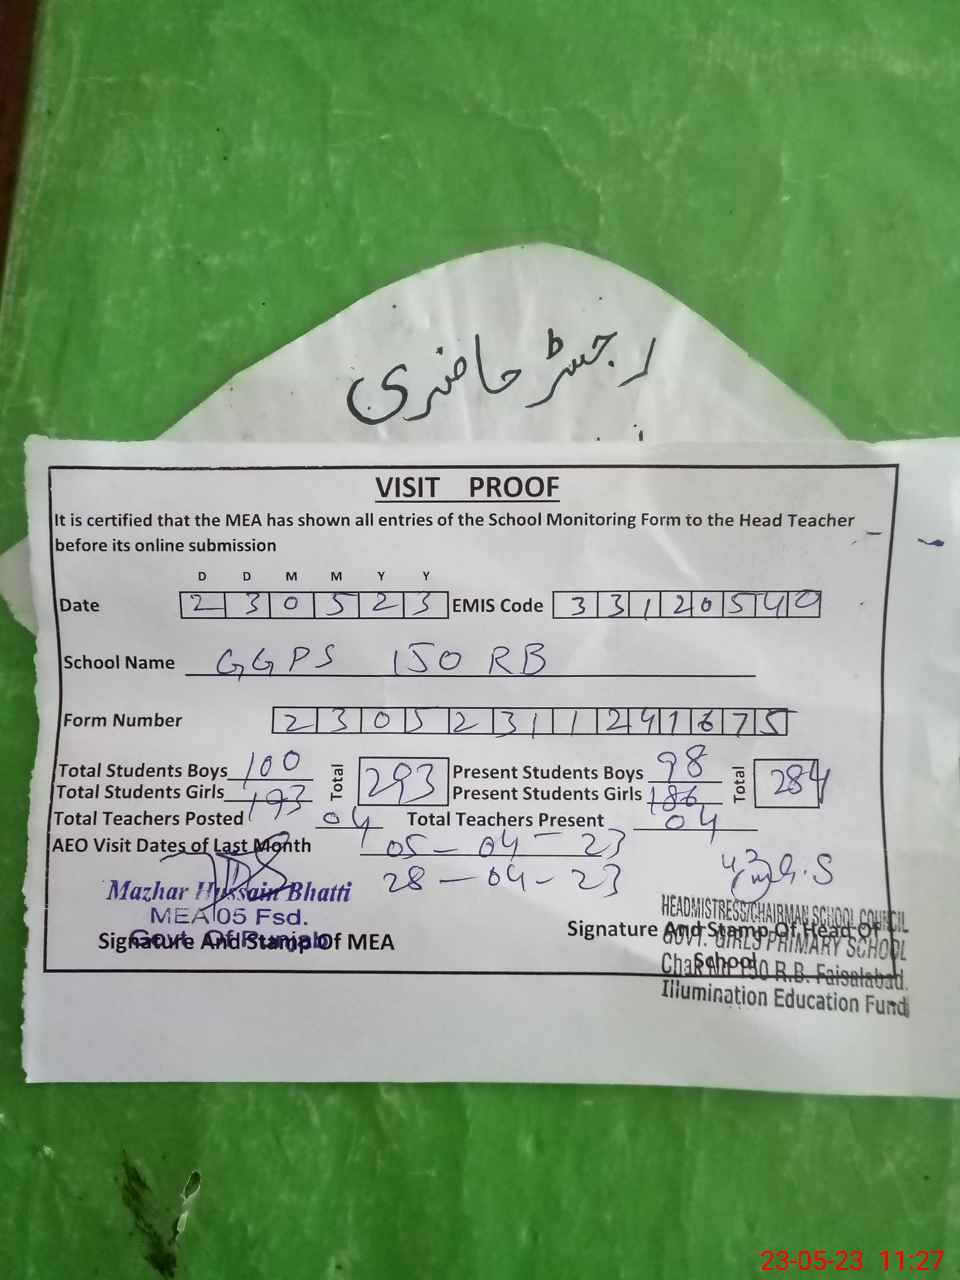 رجسٹر حاضری
VISIT PROOF
It is certified that the MEA has shown all entries of the School Monitoring Form to the Head Teacher
before its online submission
D D M M Y Y
Date 2 3 0 5 2 3 EMIS Code 3 3 1 2 0 5 4 0
School Name GGPS 150 RB
Form Number 2 3 0 5 2 3 1 1 2 4 1 6 7 5
Total Students Boys 100 Total 293 Present Students Boys 98 Total 284
Total Students Girls 193 Present Students Girls 186
Total Teachers Posted 04 Total Teachers Present 04
AEO Visit Dates of Last Month 05-04-23
28-04-23
Mazhar Hussain Bhatti
MEA 05 Fsd.
Govt. Of Punjab
Signature And Stamp Of MEA
HEADMISTRESS/CHAIRMAN SCHOOL COUNCIL
Signature And Stamp Of Head Of
GOVT. GIRLS PRIMARY SCHOOL
School
Chak No 150 R.B. Faisalabad.
Illumination Education Fund
23-05-23 11:27